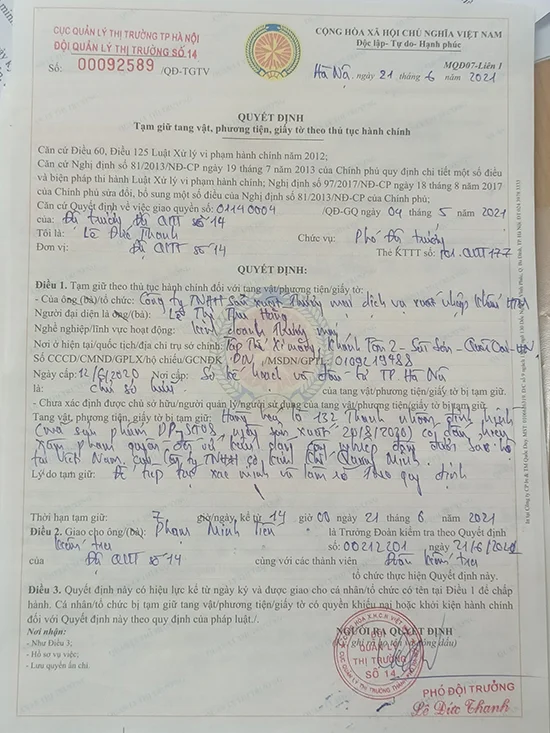 CỤC QUẢN LÝ THỊ TRƯỜNG TP HÀ NỘI
ĐỘI QUẢN LÝ THỊ TRƯỜNG SỐ 14
Số: 00092589 /QĐ-TGTV
CỘNG HÒA XÃ HỘI CHỦ NGHĨA VIỆT NAM
Độc lập- Tự do- Hạnh phúc
MQĐ07-Liên 1
Hà Nội, ngày 21 tháng 6 năm 2021
QUYẾT ĐỊNH
Tạm giữ tang vật, phương tiện, giấy tờ theo thủ tục hành chính
Căn cứ Điều 60, Điều 125 Luật Xử lý vi phạm hành chính năm 2012;
Căn cứ Nghị định số 81/2013/NĐ-CP ngày 19 tháng 7 năm 2013 của Chính phủ quy định chi tiết một số điều
và biện pháp thi hành Luật Xử lý vi phạm hành chính; Nghị định số 97/2017/NĐ-CP ngày 18 tháng 8 năm 2017
của Chính phủ sửa đổi, bổ sung một số điều của Nghị định số 81/2013/NĐ-CP của Chính phủ;
Căn cứ Quyết định về việc giao quyền số: 01140004 /QĐ-GQ ngày 04 tháng 5 năm 2021
của: Đội trưởng Đội QLTT số 14
Tôi là: Lê Đức Thanh Chức vụ: Phó Đội trưởng
Đơn vị: Đội QLTT số 14 Thẻ KTTT số: QLTT 177
QUYẾT ĐỊNH:
Điều 1. Tạm giữ theo thủ tục hành chính đối với tang vật/phương tiện/giấy tờ:
- Của ông (bà)/tổ chức: Công ty TNHH sản xuất thương mại dịch vụ xuất nhập khẩu
Người đại diện là ông/(bà): Lê Thị Thu Hằng
Nghề nghiệp/lĩnh vực hoạt động: Kinh doanh thương mại
Nơi ở hiện tại/quốc tịch/địa chỉ trụ sở chính: Tập thể Xi măng, Khánh Tân 2 - Sài Sơn - Quốc Oai - HN
Số CCCD/CMND/GPLX/hộ chiếu/GCNĐK ĐN /MSDN/GPTL: 0109219488
Ngày cấp: 12/6/2020 Nơi cấp: Sở kế hoạch và đầu tư TP Hà Nội
là: chủ sở hữu của tang vật/phương tiện/giấy tờ bị tạm giữ.
- Chưa xác định được chủ sở hữu/người quản lý/người sử dụng của tang vật/phương tiện/giấy tờ bị tạm giữ.
Tang vật, phương tiện, giấy tờ bị tạm giữ: Hàng hóa là 132 thanh nhôm định hình
(mã sản phẩm DP-SG08, ngày sản xuất 20/8/2020) có dấu hiệu
xâm phạm quyền đối với kiểu dáng công nghiệp đang được bảo hộ
tại Việt Nam của Công ty TNHH sở hữu
Lý do tạm giữ: Để tiếp tục xác minh và làm rõ theo quy định
Thời hạn tạm giữ: 7 giờ/ngày, kể từ 14 giờ 00 ngày 21 tháng 6 năm 2021
Điều 2. Giao cho ông/(bà): Phạm Minh Tiến là Trưởng Đoàn kiểm tra theo Quyết định
kiểm tra số: 00212201 ngày 21/6/2021
của Đội QLTT số 14 cùng với các thành viên Đoàn kiểm tra
tổ chức thực hiện Quyết định này.
Điều 3. Quyết định này có hiệu lực kể từ ngày ký và được giao cho cá nhân/tổ chức có tên tại Điều 1 để chấp
hành. Cá nhân/tổ chức bị tạm giữ tang vật/phương tiện/giấy tờ có quyền khiếu nại hoặc khởi kiện hành chính
đối với Quyết định này theo quy định của pháp luật./.
Nơi nhận:
- Như Điều 3;
- Hồ sơ vụ việc;
- Lưu quyển ấn chỉ.
NGƯỜI RA QUYẾT ĐỊNH
ĐỘI
QUẢN LÝ
THỊ TRƯỜNG
SỐ 14
PHÓ ĐỘI TRƯỞNG
Lê Đức Thanh